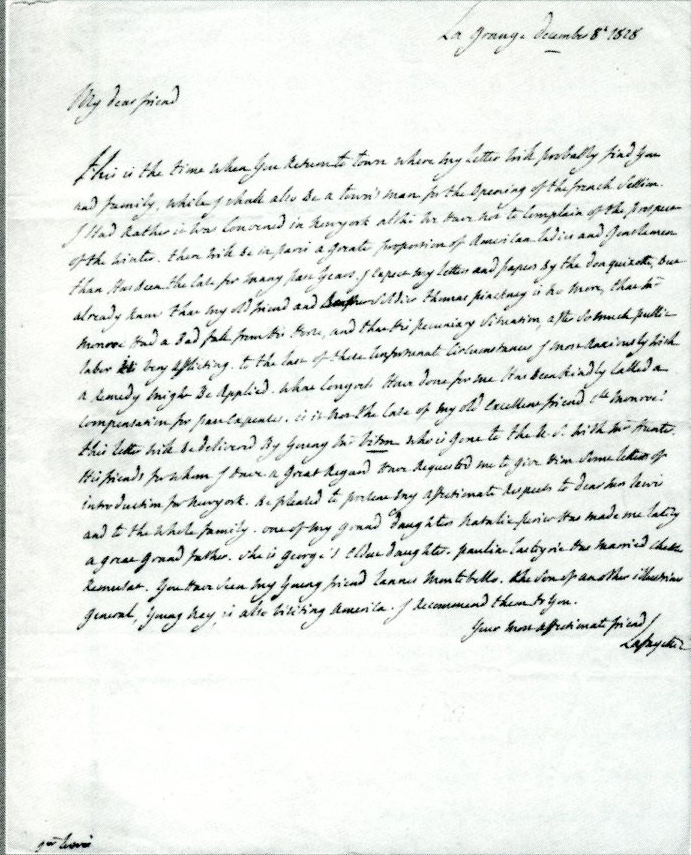 La Grange December 8h 1828
My dear friend
this is the time when You Return to town where my Letter Will probably find You
and family, while I shall also Be a town's man for the Opening of the french Session.
I Had Rather it Was Concerned in Newyork altho We Have not to Complain of the prospect
of the Winter. there Will be in paris a greater proportion of American Ladies and Gentlemen
than Has Been the Case for Many past Years. I Expect my letters and papers By the don quixotte, but
already know that my old friend and Soldier thomas pinckney is no More, that Mr
monroe Had a Bad fall from His Horse, and that His pecuniary Situation, after So much public
labor is very afflicting. to the last of these Unfortunate Circumstances I most anxiously Wish
a remedy might Be Applied. What Congress Have done for me Has Been kindly Called a
compensation for past Expenses. is it Not the Case of my old Excellent friend Cel Monroe?
this letter Will be delivered By Young Mr Who is gone to the U. S. With Mr
His friends for whom I Have a Great Regard Have Requested me to give Him Some letters of
introduction for Newyork. Be pleased to present my affectionate Respects to dear Mrs lewis
and to the Whole family. one of my grand daughters Natalie perier Has made me lately
a great Grand father. She is George's Eldest daughter. pauline lasteyrie Has married
Remusat. You Have Seen my Young friend Lannes Montebello. the Son of another illustrious
General, Young Ney, is also Visiting America. I Recommend them to You.
Your most affectionate friend
Lafayette